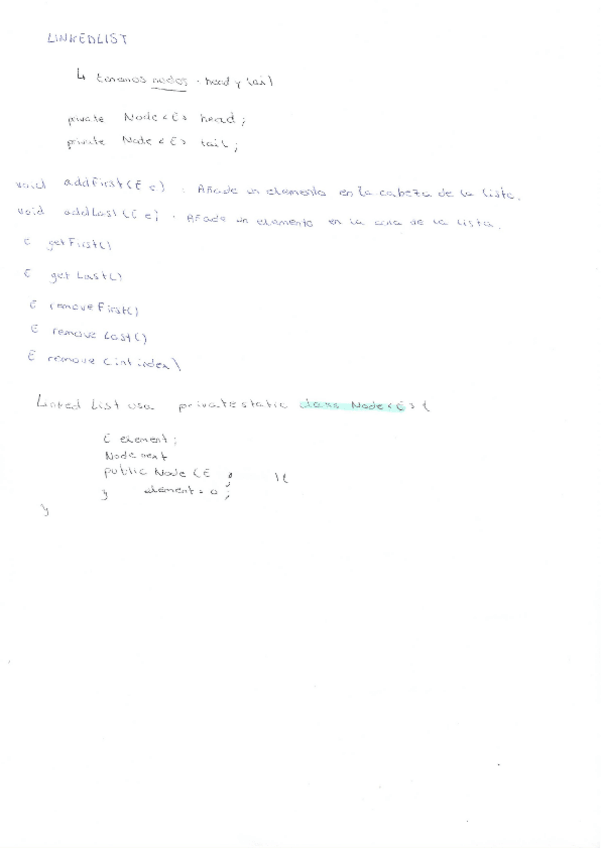 LINKEDLIST
↳ tenemos nodos - head y tail
private Node<E> head;
private Node<E> tail;
void addFirst(E e) : Añade un elemento en la cabeza de la lista.
void addLast(E e) - Añade un elemento en la cola de la lista.
E getFirst()
E getLast()
E removeFirst()
E removeLast()
E remove(int index)
Linked List usa private static class Node<E>{
E element;
Node next
public Node(E ){
} element = o;
}